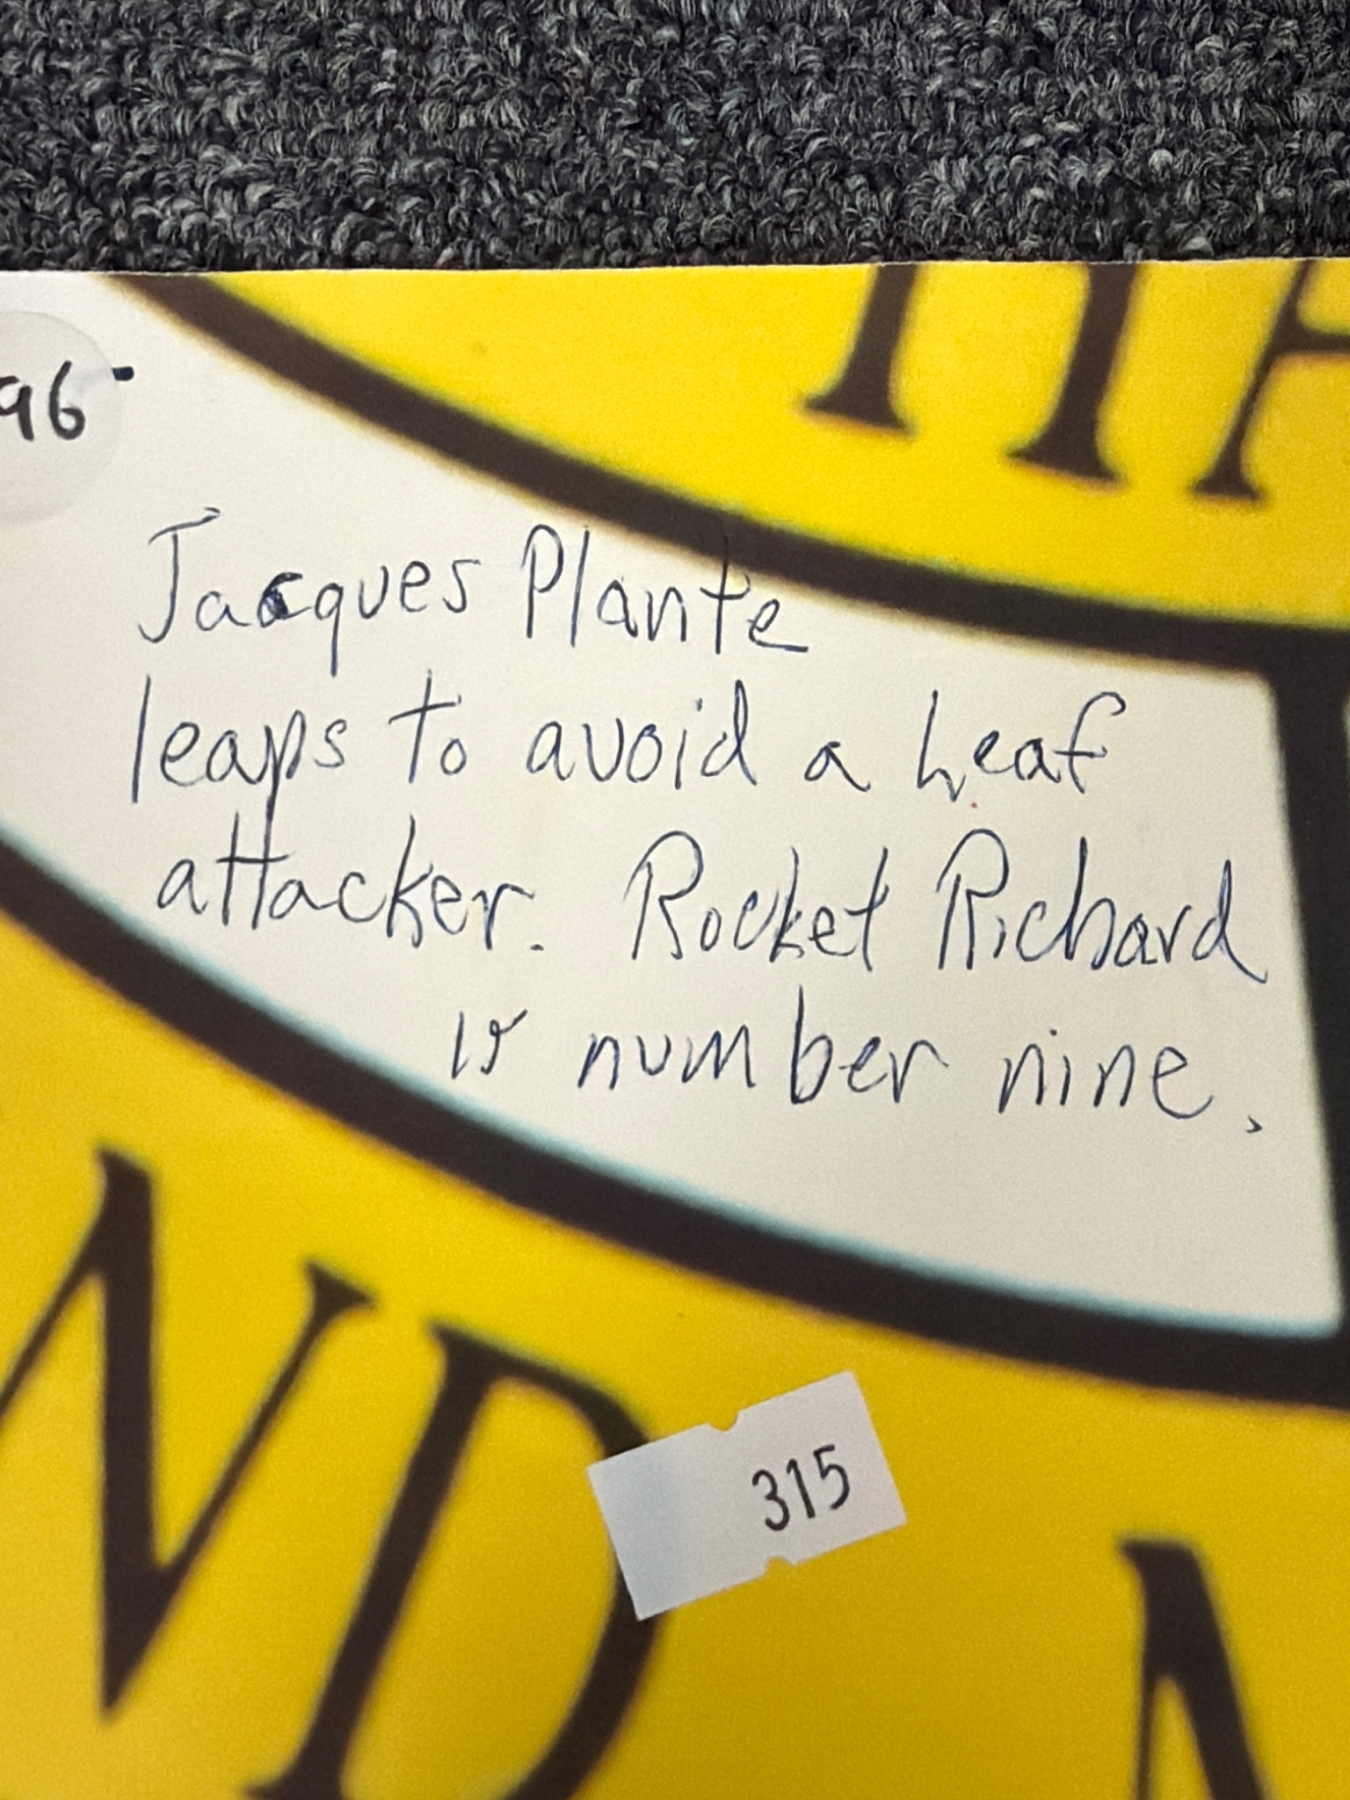 HA
96-
Jacques Plante
leaps to avoid a Leaf
attacker. Rocket Richard
is number nine.
ND
315